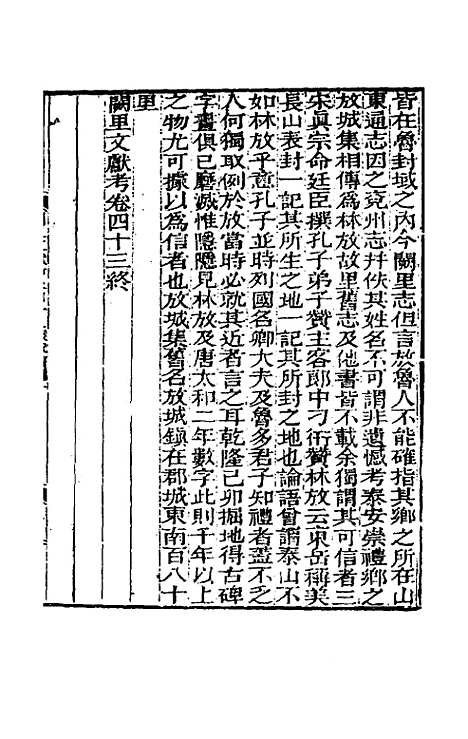 皆在魯封域之內今闕里志但言放魯人不能確指其鄉之所在山
東通志因之兖州志幷佚其姓名不可謂非遺憾考泰安崇禮鄉之
放城集相傳爲林放故里舊志及他書皆不載余獨謂其可信者三
宋眞宗命廷臣撰孔子弟子贊主客郎中刁衎贊林放云東岳稱美
長山表封一記其所生之地一記其所封之地也論語曾謂泰山不
如林放乎意孔子並時列國名卿大夫及魯多君子知禮者蓋不乏
人何獨取例於放當時必就其近者言之耳乾隆己卯掘地得古碑
字畫俱已磨滅惟隱隱見林放及唐太和二年數字此則千年以上
之物尤可據以爲信者也放城集舊名放城鎮在郡城東南百八十
里
闕里文獻考卷四十三終